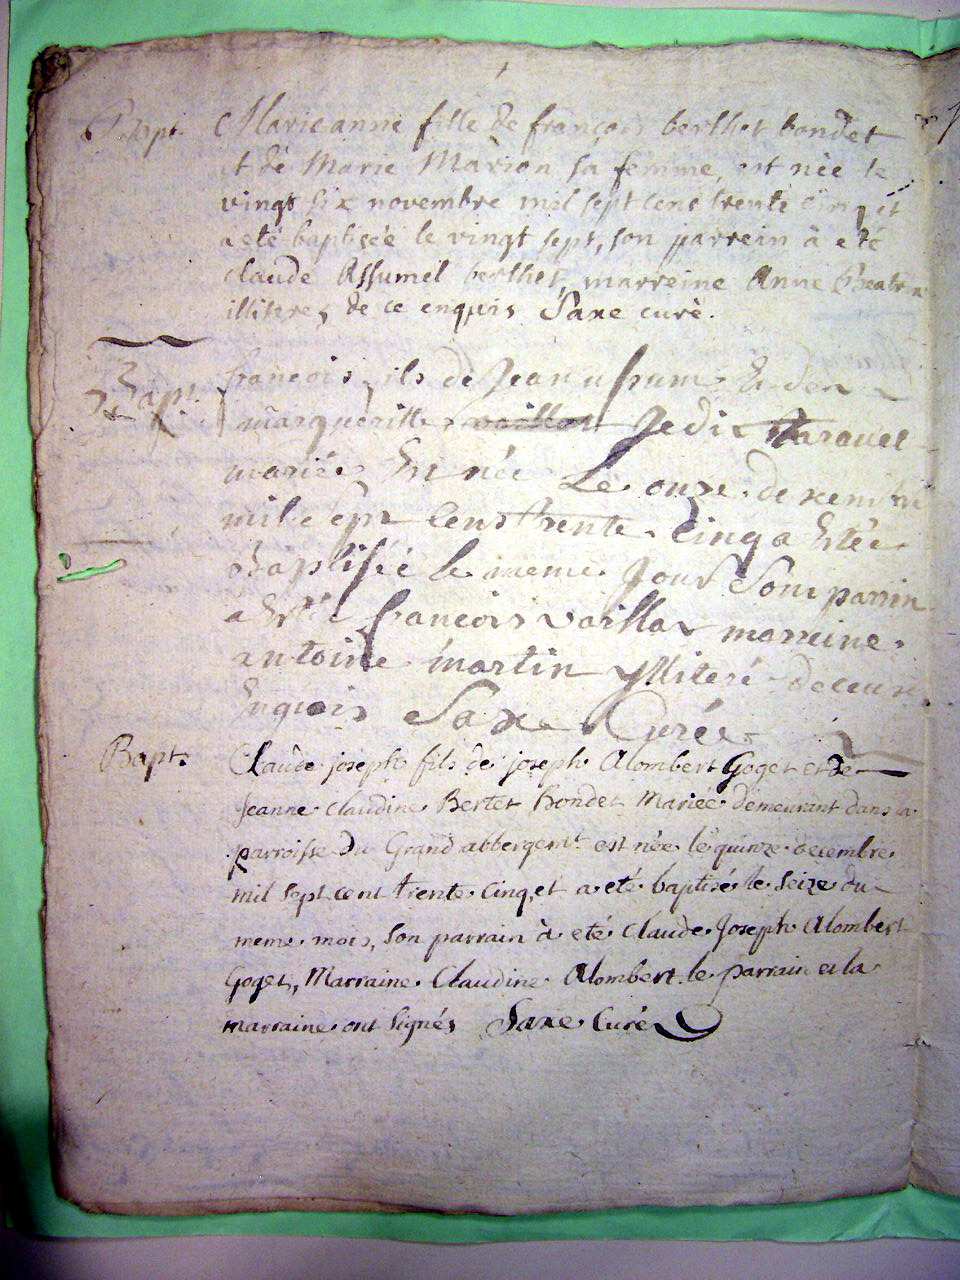 Bapt. Marie anne fille de françois berthet bondet
et de Marie Marion sa femme, est née le
vingt six novembre mil sept cens trente cinq et
a eté baptisée le vingt sept, son parrein à eté
claude Assumel berthet, marreine Anne Beatrix
illiteres de ce enquis Saxe curé.
Bapt. françois fils de Jean
margueritte vaillat Jedit
mariée Est née Le onze decembre
mil sept Cens trente Cinq a Estée
Baptisée le meme Jour Son parrin
a Esté francois vaillat marreine
antoine martin ylliteré de ce
Enquis Saxe Curée
Bapt. Claude joseph fils de joseph Alombert Goget et de
Jeanne Claudine Bertet Bondet Mariée demeurant dans la
parroisse du Grand abbergemt est née le quinze decembre
mil sept cent trente cinq, et a eté baptisé le seize du
meme mois, son parrain à eté Claude Joseph Alombert
Goget, Marraine Claudine Alombert le parrain et la
marraine ont signés Saxe Curé